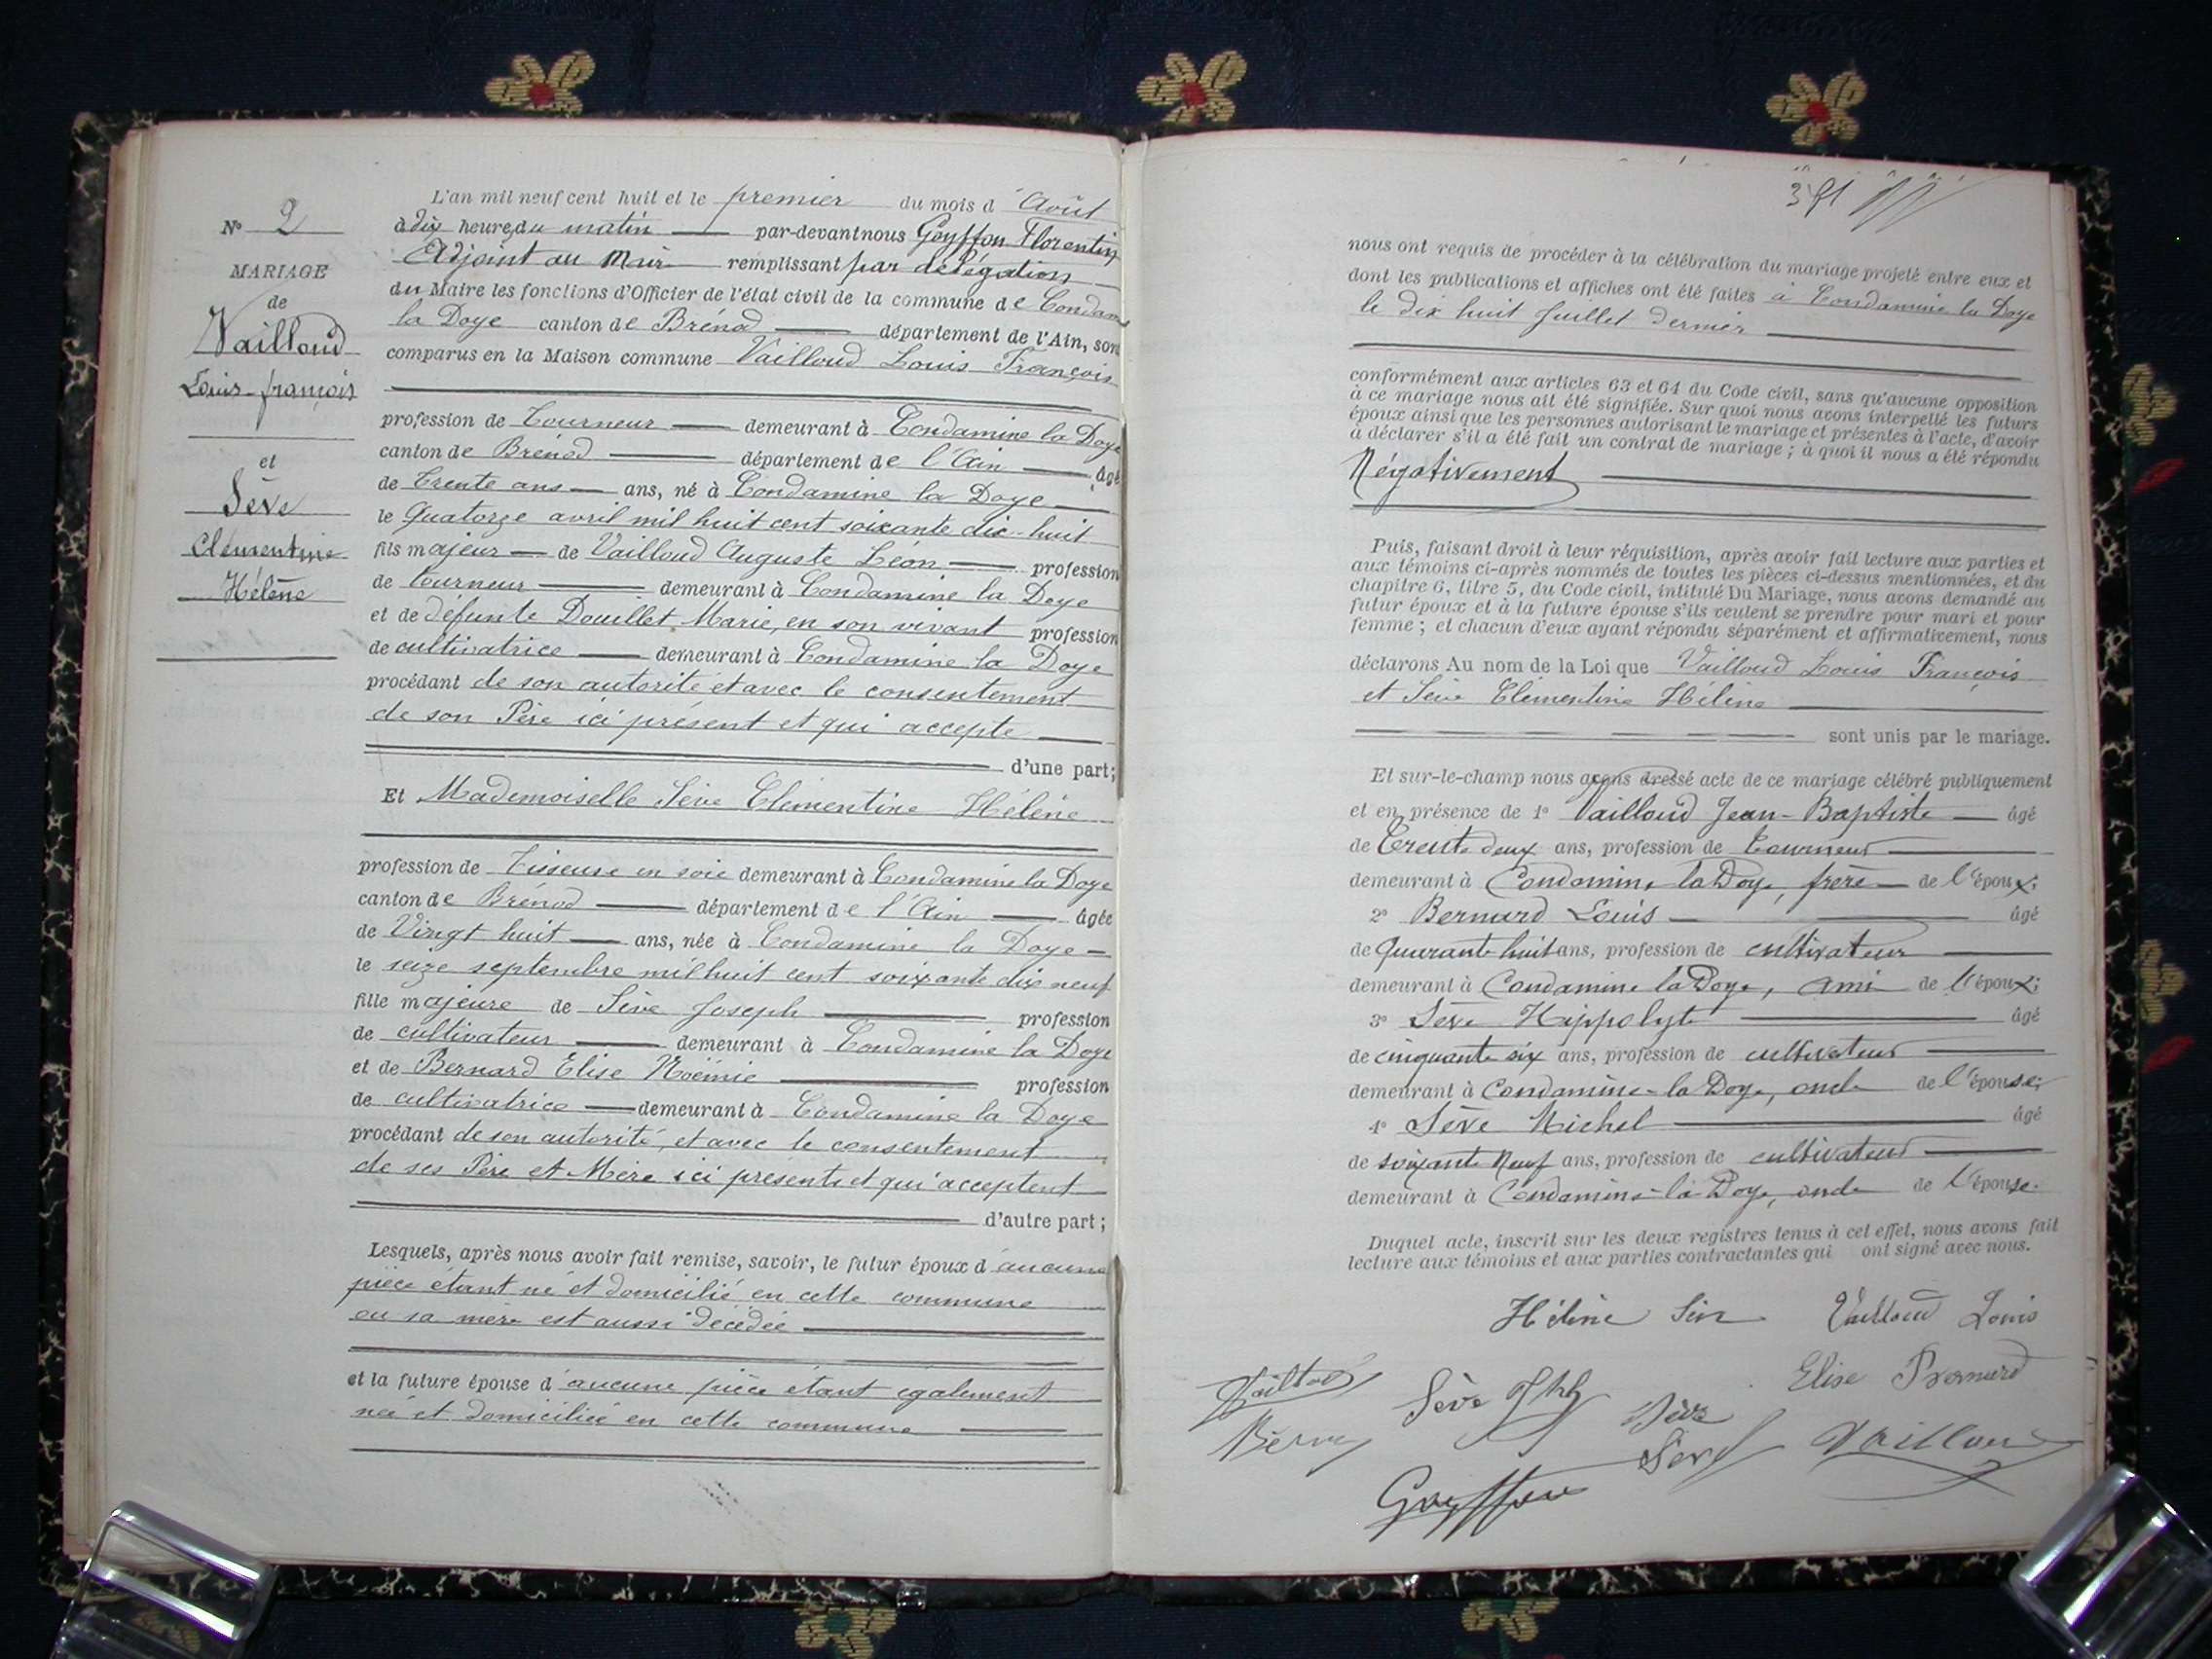 N° 2
MARIAGE
de
Vailloud
Louis-françois
et
Sève
Clémentine
Hélène
L'an mil neuf cent huit et le premier du mois d'Août
à dix heures du matin par-devant nous Goyffon Florentin
Adjoint au Maire remplissant par délégation
du Maire les fonctions d'Officier de l'état civil de la commune de Condamine
la Doye canton de Brénod département de l'Ain, sont
comparus en la Maison commune Vailloud Louis François
profession de Tourneur demeurant à Condamine la Doye
canton de Brénod département de l'Ain âgé
de Trente ans ans, né à Condamine la Doye
le Quatorze avril mil huit cent soixante dix-huit
fils majeur de Vailloud Auguste Léon profession
de tourneur demeurant à Condamine la Doye
et de défunte Douillet Marie, en son vivant profession
de cultivatrice demeurant à Condamine la Doye
procédant de son autorité et avec le consentement
de son Père ici présent et qui accepte
d'une part;
Et Mademoiselle Sève Clémentine Hélène
profession de Tisseuse en soie demeurant à Condamine la Doye
canton de Brénod département de l'Ain âgée
de Vingt huit ans, née à Condamine la Doye
le seize septembre mil huit cent soixante dix neuf
fille majeure de Sève Joseph profession
de cultivateur demeurant à Condamine la Doye
et de Bernard Elise Noëmie profession
de cultivatrice demeurant à Condamine la Doye
procédant de son autorité, et avec le consentement
de ses Père et Mère ici présents et qui acceptent
d'autre part;
Lesquels, après nous avoir fait remise, savoir, le futur époux d'aucune
pièce étant né et domicilié en cette commune
ou sa mère est aussi décédée
et la future épouse d'aucune pièce étant également
née et domiciliée en cette commune
nous ont requis de procéder à la célébration du mariage projeté entre eux et
dont les publications et affiches ont été faites à Condamine la Doye
le dix huit Juillet dernier
conformément aux articles 63 et 64 du Code civil, sans qu'aucune opposition
à ce mariage nous ait été signifiée. Sur quoi nous avons interpellé les futurs
époux ainsi que les personnes autorisant le mariage et présentes à l'acte, d'avoir
à déclarer s'il a été fait un contrat de mariage; à quoi il nous a été répondu
Négativement
Puis, faisant droit à leur réquisition, après avoir fait lecture aux parties et
aux témoins ci-après nommés de toutes les pièces ci-dessus mentionnées, et du
chapitre 6, titre 5, du Code civil, intitulé Du Mariage, nous avons demandé au
futur époux et à la future épouse s'ils veulent se prendre pour mari et pour
femme; et chacun d'eux ayant répondu séparément et affirmativement, nous
déclarons Au nom de la Loi que Vailloud Louis François
et Sève Clémentine Hélène
sont unis par le mariage.
Et sur-le-champ nous avons dressé acte de ce mariage célébré publiquement
et en présence de 1° Vailloud Jean-Baptiste âgé
de Trente deux ans, profession de tourneur
demeurant à Condamine la Doye, frère de l'époux;
2° Bernard Louis âgé
de Quarante huit ans, profession de cultivateur
demeurant à Condamine la Doye, ami de l'époux;
3° Sève Hippolyte âgé
de cinquante six ans, profession de cultivateur
demeurant à Condamine-la Doye, oncle de l'épouse;
4° Sève Michel âgé
de soixante Neuf ans, profession de cultivateur
demeurant à Condamine-la Doye, oncle de l'épouse.
Duquel acte, inscrit sur les deux registres tenus à cet effet, nous avons fait
lecture aux témoins et aux parties contractantes qui ont signé avec nous.
Hélène Sève Vailloud Louis
Elise Bernard
Sève Sève
Vailloud
Goyffon